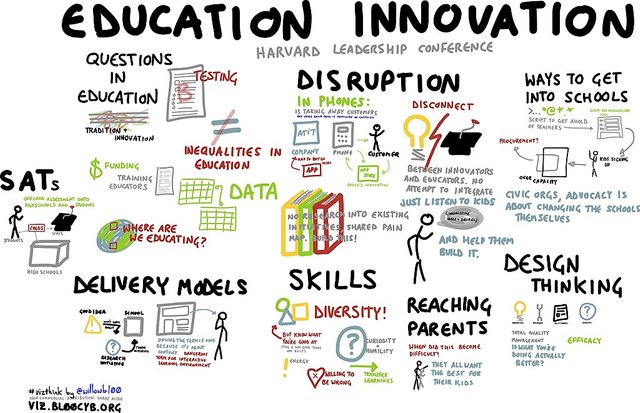 EDUCATION INNOVATION
HARVARD LEADERSHIP CONFERENCE
QUESTIONS
IN
EDUCATION
TRADITION
INNOVATION
TESTING
INEQUALITIES IN
EDUCATION
$ FUNDING
TRAINING
EDUCATORS
DATA
WHERE ARE
WE EDUCATING?
SATs
STUDENTS
HIGH SCHOOLS
DISRUPTION
IN PHONES:
IS TAKING AWAY CUSTOMERS
AT&T
COMPANY
PHONE
CUSTOMER
APP
APP
STORE
DISCONNECT
BETWEEN INNOVATORS
AND EDUCATORS. NO
ATTEMPT TO INTEGRATE
JUST LISTEN TO KIDS
AND HELP THEM
BUILD IT.
NO RESEARCH INTO EXISTING
INITIATIVES. SHARED PAIN
MAP. BUILD THIS!
WAYS TO GET
INTO SCHOOLS
SCRIPT TO GET AHOLD
OF TEACHERS
PROCUREMENT?
OVER CAPACITY
KIDS SIGNING
UP
CIVIC ORGS, ADVOCACY IS
ABOUT CHANGING THE SCHOOLS
THEMSELVES
DELIVERY MODELS
GOOD IDEA
SCHOOL
RESEARCH
SKILLS
DIVERSITY!
BUT KNOW WHAT
YOU'RE GOOD AT
CURIOSITY
+
HUMILITY
ENERGY
WILLING TO
BE WRONG
TRANSFER
LEARNINGS
REACHING
PARENTS
WHEN DID THIS BECOME
DIFFICULT?
THEY ALL WANT
THE BEST FOR
THEIR KIDS
DESIGN
THINKING
TOTAL QUALITY
MANAGEMENT
IS WHAT YOU'RE
DOING ACTUALLY
BETTER?
EFFICACY
#vizthink by @willowbl00
VIZ.BLOOCYB.ORG